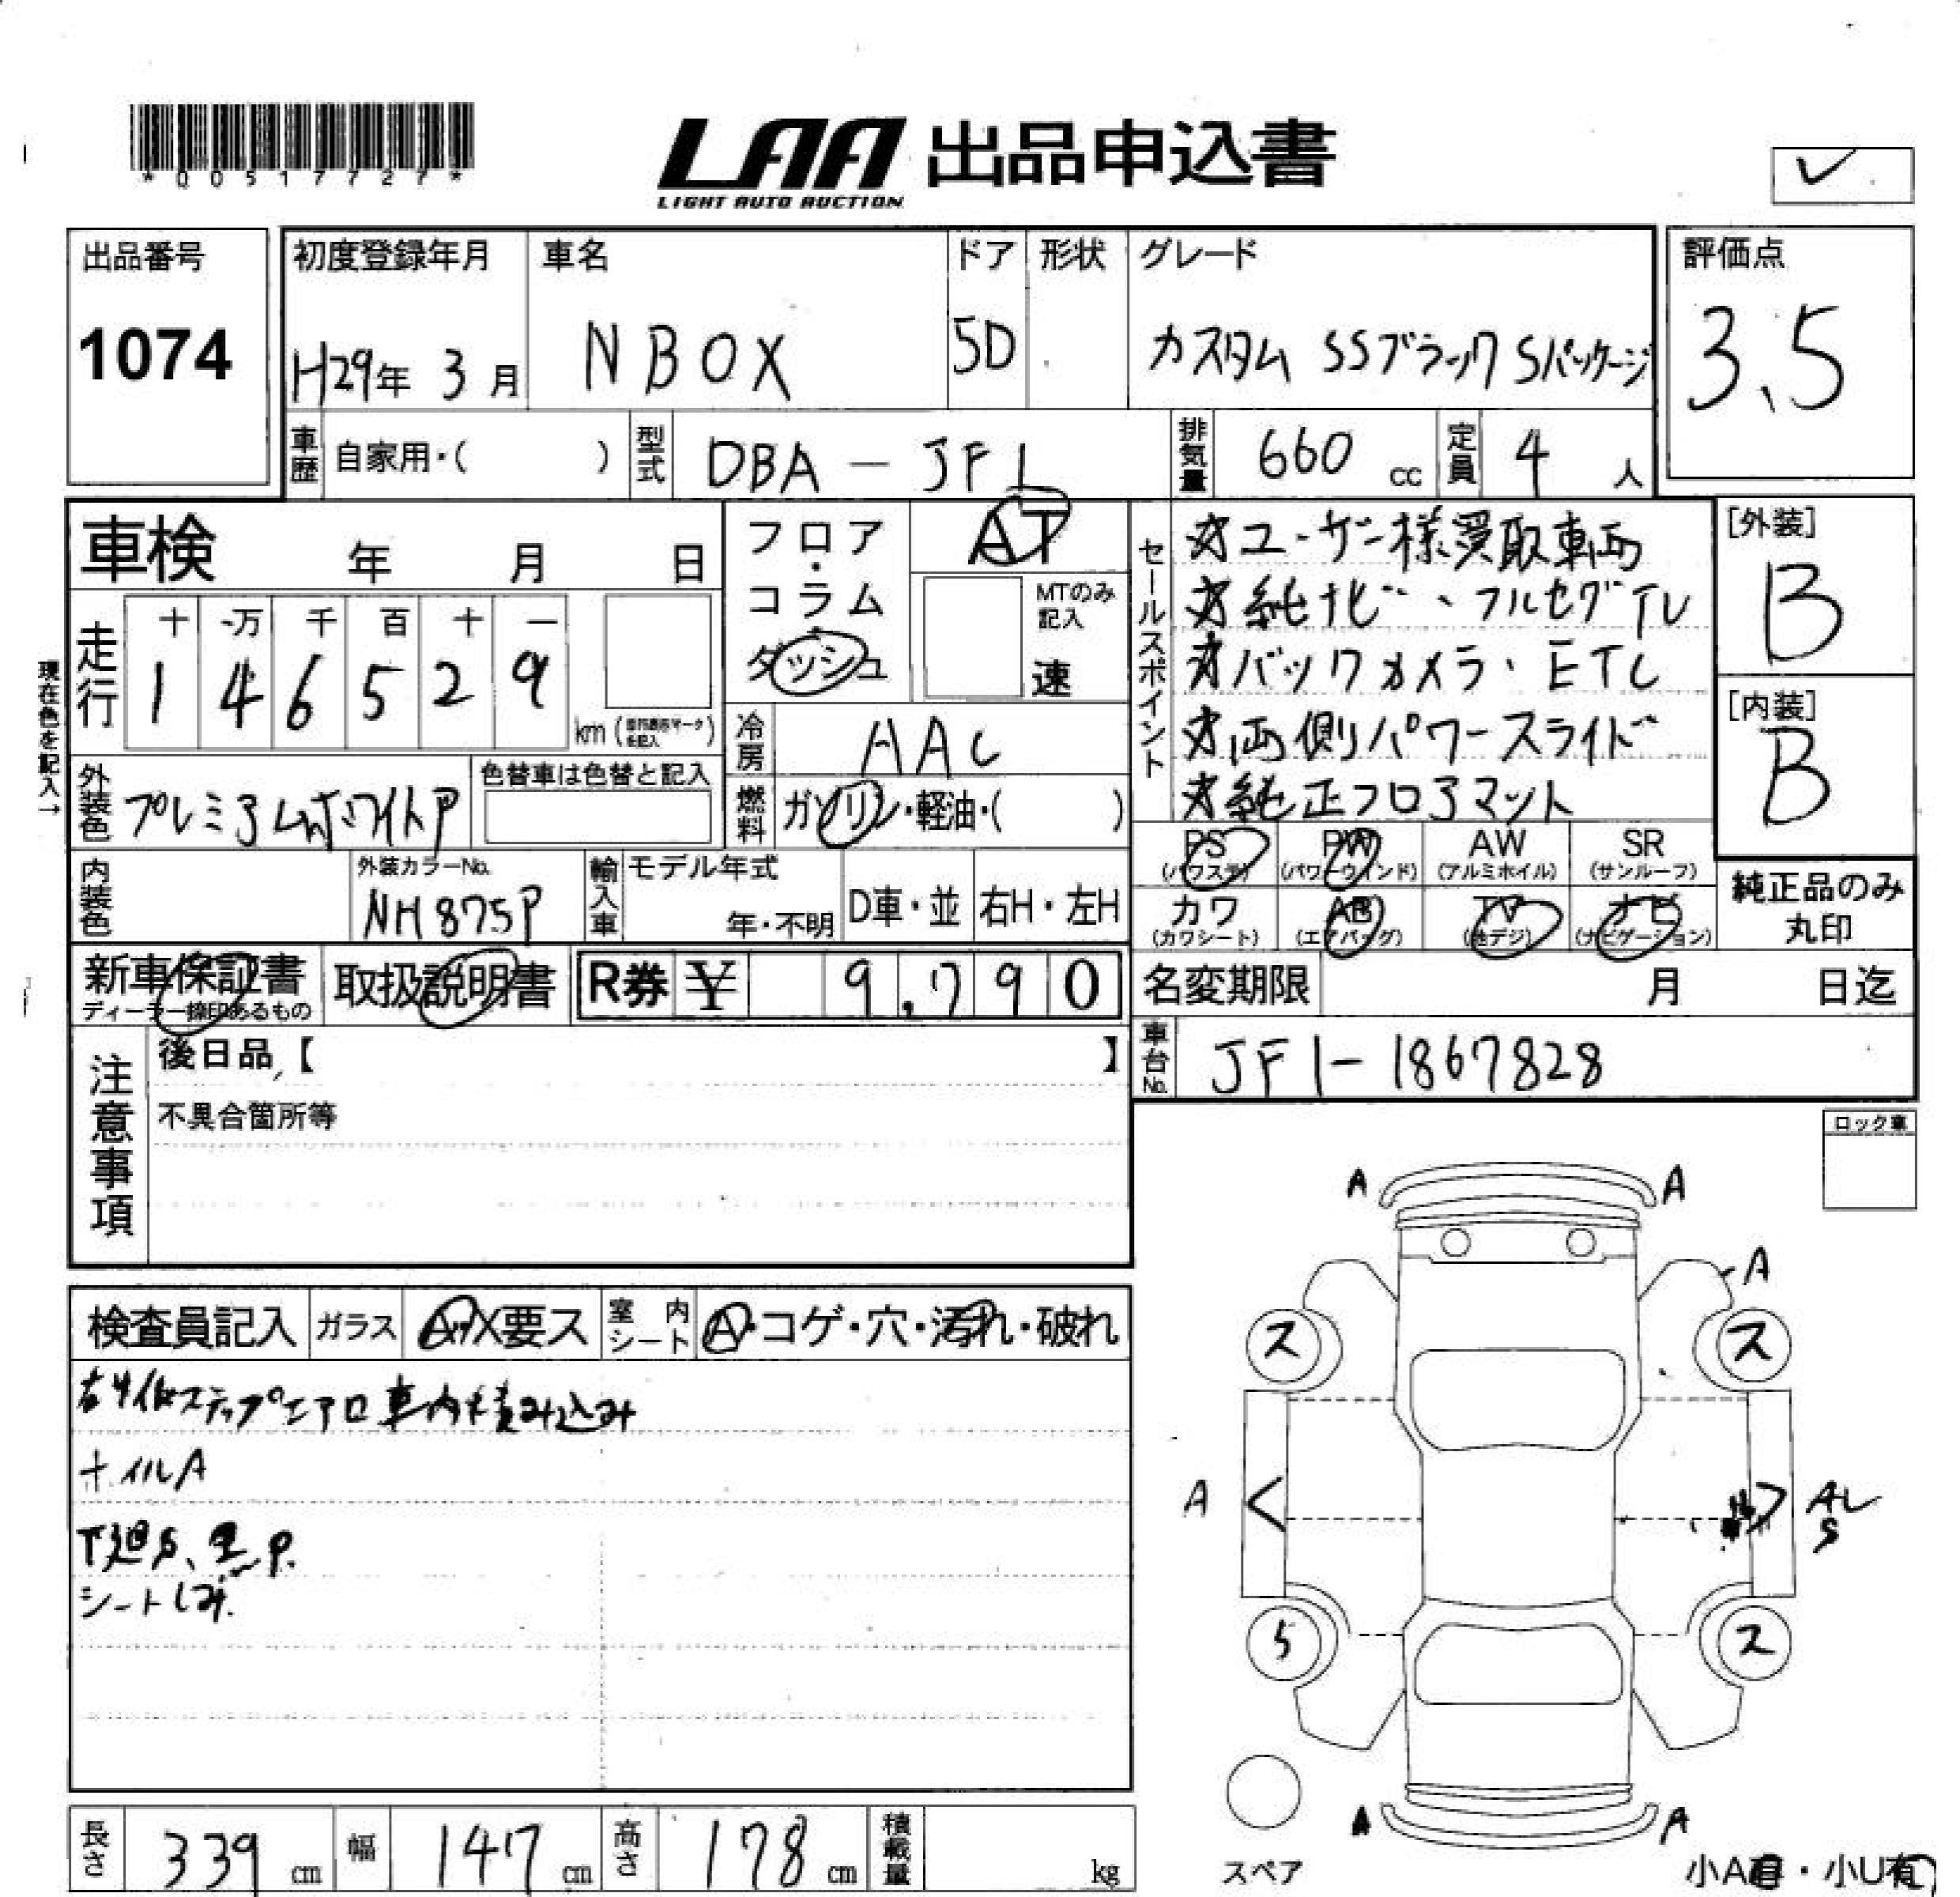 *00517727*
LAA 出品申込書
LIGHT AUTO AUCTION
✓
出品番号
1074
初度登録年月
H29年 3月
車名
NBOX
ドア
5D
形状
グレード
カスタム SSブラックSパッケージ
評価点
3.5
車歴 自家用・( )
型式 DBA-JF1
排気量 660 cc
定員 4 人
車検 年 月 日
フロア・コラム・ダッシュ
AT
MTのみ記入
速
セールスポイント
★ユーザー様買取車両
★純ナビ、フルセグTV
★バックカメラ・ETC
★両側パワースライド
★純正フロアマット
[外装]
B
[内装]
B
現在色を記入→
走行
十 万 千 百 十 一
1 4 6 5 2 9
km
冷房 AAC
外装色 プレミアムホワイトP
色替車は色替と記入
燃料 ガソリン・軽油・( )
内装色
外装カラーNo.
NH875P
輸入車
モデル年式
年・不明
D車・並
右H・左H
PS (パワステ)
PW (パワーウインド)
AW (アルミホイル)
SR (サンルーフ)
カワ (カワシート)
AB (エアバッグ)
TV (地デジ)
ナビ (ナビゲーション)
純正品のみ丸印
新車保証書
取扱説明書
R券 ¥ 9,790
名変期限 月 日迄
車台No. JF1-1867828
注意事項
後日品【 】
不具合箇所等
ロック車
検査員記入
ガラス A・X要ス
室内シート A・コゲ・穴・汚れ・破れ
右サイドステップエアロ車内積み込み
ホイルA
下廻S、黒P.
シートしみ.
A A
A
ス ス
A AL
S
5 ス
A A
スペア
小A有・小U有
長さ 339 cm
幅 147 cm
高さ 178 cm
積載量 kg